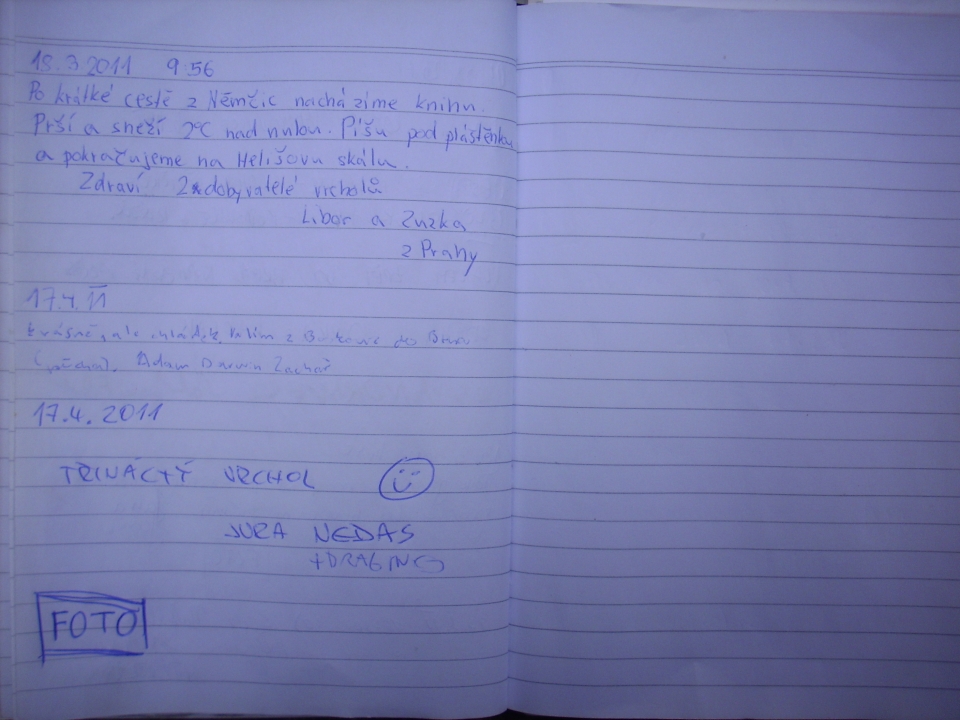 18.3 2011 9:56
Po krátké cestě z Němčic nacházíme knihu.
Prší a sneží 2°C nad nulou. Píšu pod pláštěnkou
a pokračujeme na Helišovu skálu.
Zdraví 2x dobyvatelé vrcholů
Libor a Zuzka
z Prahy
17.4. 11
ale z do Brna
Adam Darwin Zachař
17.4. 2011
TŘINÁCTÝ VRCHOL
JURA NEDAS
FOTO